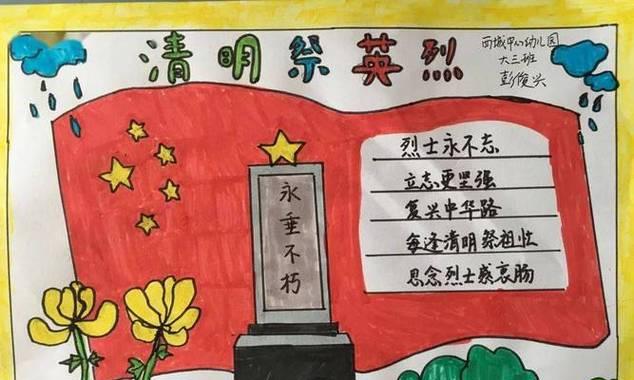 清明祭英烈
西城中心幼儿园
大三班
彭俊兴
永垂不朽
烈士永不志
立志更坚强
复兴中华路
每逢清明祭祖
思念烈士感哀肠